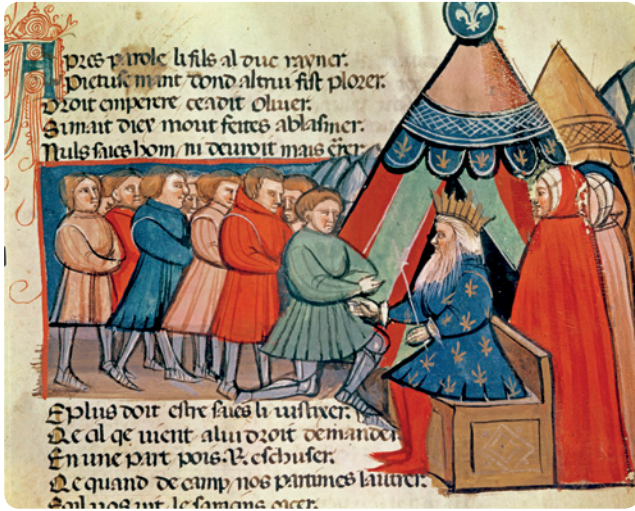 Apres parole li fils al duc rayner.
Pietusemant dond altrui fist plorer.
Droit emperere ce a dit Oliuer.
Si mait diex mout feites ablasmer.
Nuls saies hom / ni deuroit mais
E plus doit estre saies li
Qe cil qe uient a lui droit demander
En une part pois .R. eschuser.
Qe quand de camp / nos partimes lautrer.